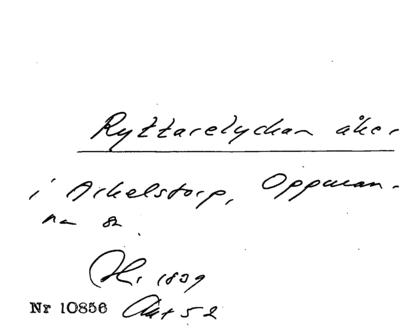 Ryttarelyckan åker
i Arkelstorp, Oppman-
na sn
Hr 1839
Nr 10856 Akt 52